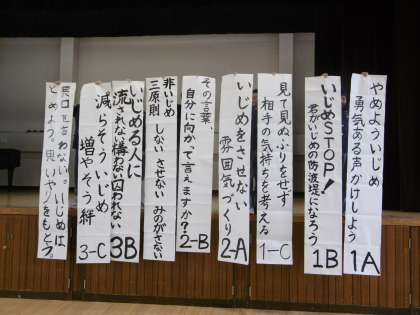 やめよういじめ
勇気ある声かけしよう
1A
いじめSTOP!
君がいじめの防波堤になろう
1B
見て見ぬふりをせず
相手の気持ちを考える
1-C
いじめをさせない
雰囲気づくり
2-A
その言葉
自分に向かって言えますか?
2-B
非いじめ
三原則
しない させない みのがさない
いじめる人に
流されない構わない囚われない
3B
減らそういじめ
増やそう絆
3-C
悪口を言わない。いじめは
とめよう。思いやりをもとう。